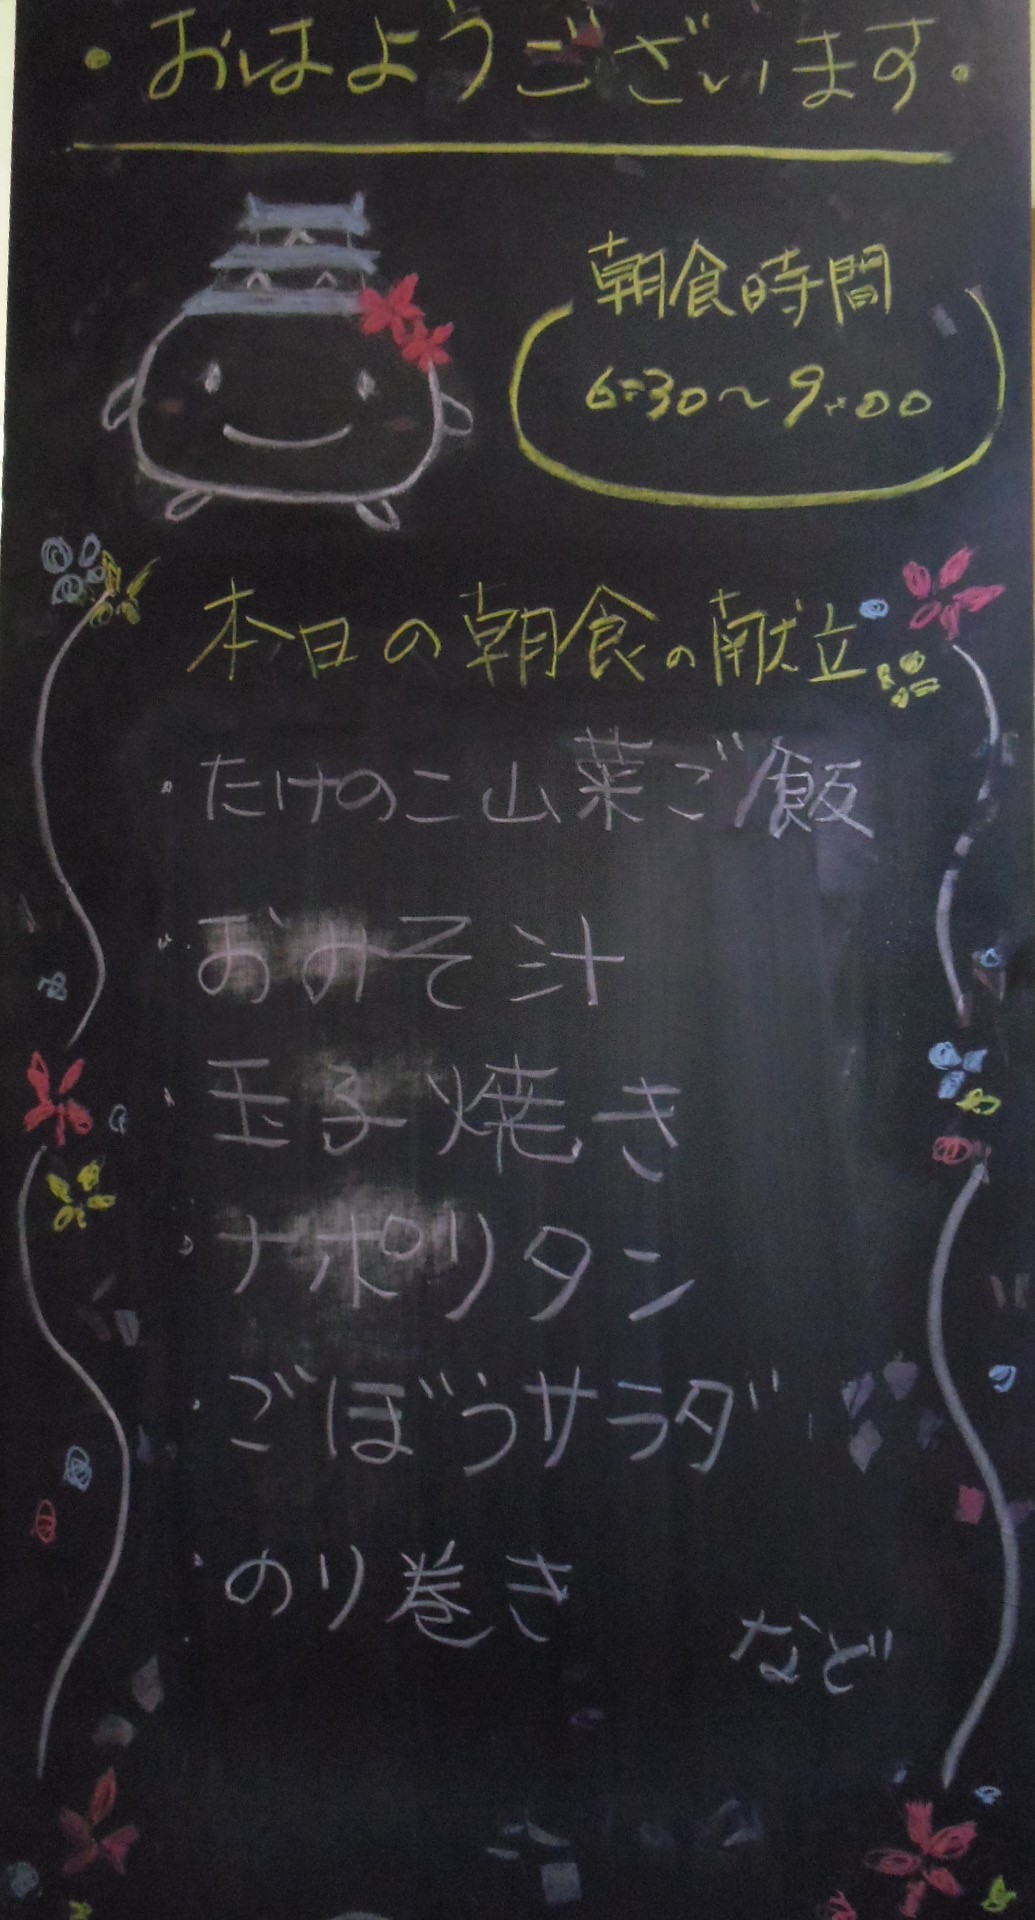 ・おはようございます・
朝食時間
6:30〜9:00
本日の朝食の献立
・たけのこ山菜ご飯
・おみそ汁
・玉子焼き
・ナポリタン
・ごぼうサラダ
・のり巻き
など